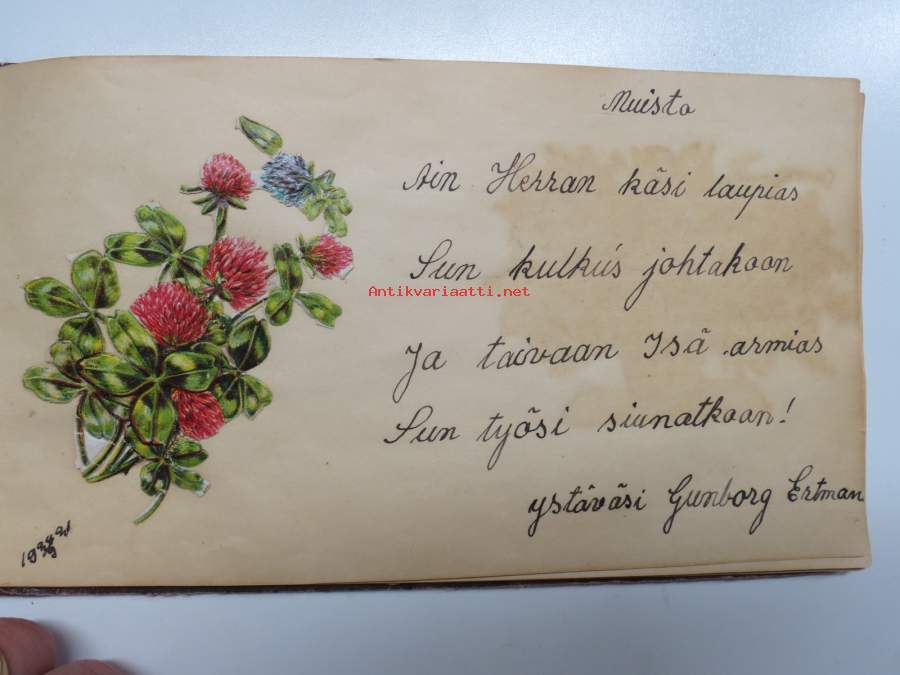 Muisto
Ain Herran käsi laupias
Sun kulkus johtakoon
Antikvariaatti.net
Ja taivaan Isä armias
Sun työsi siunatkoon!
ystäväsi Gunborg Ertman